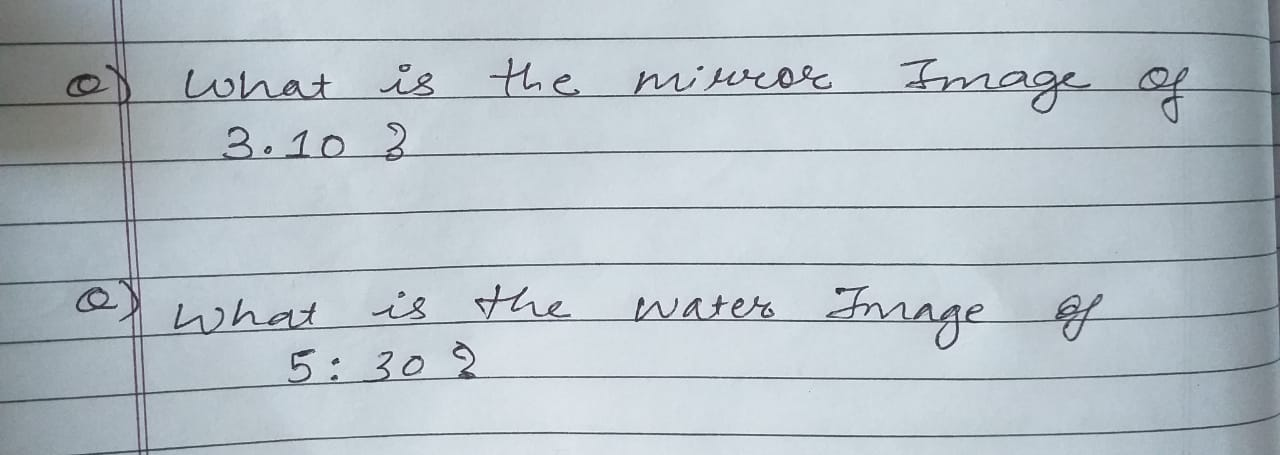 Q) What is the mirror Image of
3.10 ?
Q) What is the water Image of
5:30 ?